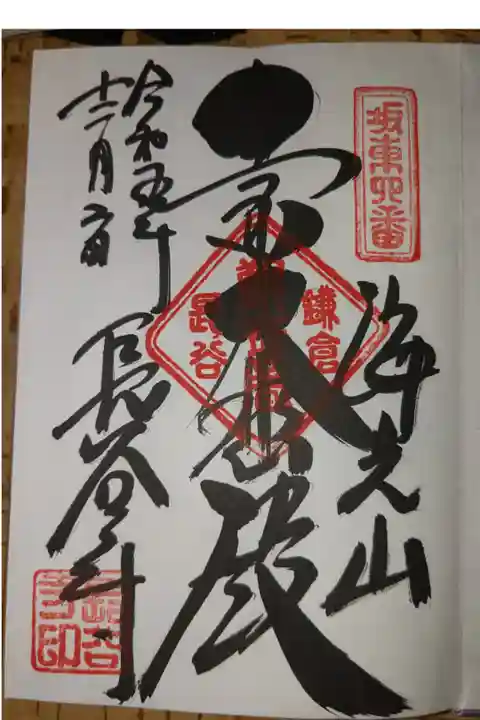 坂東四番
海光山
大悲殿
鎌倉
長谷
令和五年
十二月
長谷寺
長谷
寺印